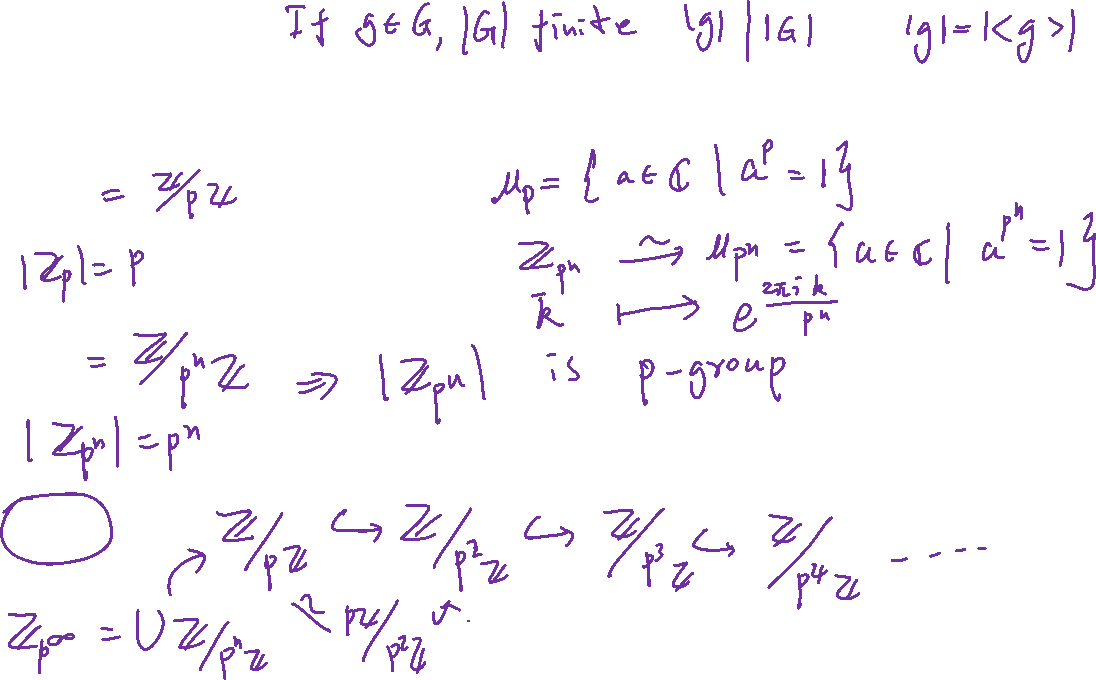 If g∈G, |G| finite |g| | |G| |g|=|<g>|
= ℤ/pℤ μ_p = { a∈ℂ | a^p = 1 }
|ℤ_p| = p ℤ_{p^n} ⥲ μ_{p^n} = { a∈ℂ | a^{p^n} = 1 }
k̄ ⟼ e^{2πik/p^n}
= ℤ/p^nℤ ⇒ |ℤ_{p^n}| is p-group
|ℤ_{p^n}| = p^n
ℤ/pℤ ↪ ℤ/p²ℤ ↪ ℤ/p³ℤ ↪ ℤ/p⁴ℤ ----
ℤ_{p^∞} = ∪ ℤ/p^nℤ ≃ pℤ/p²ℤ